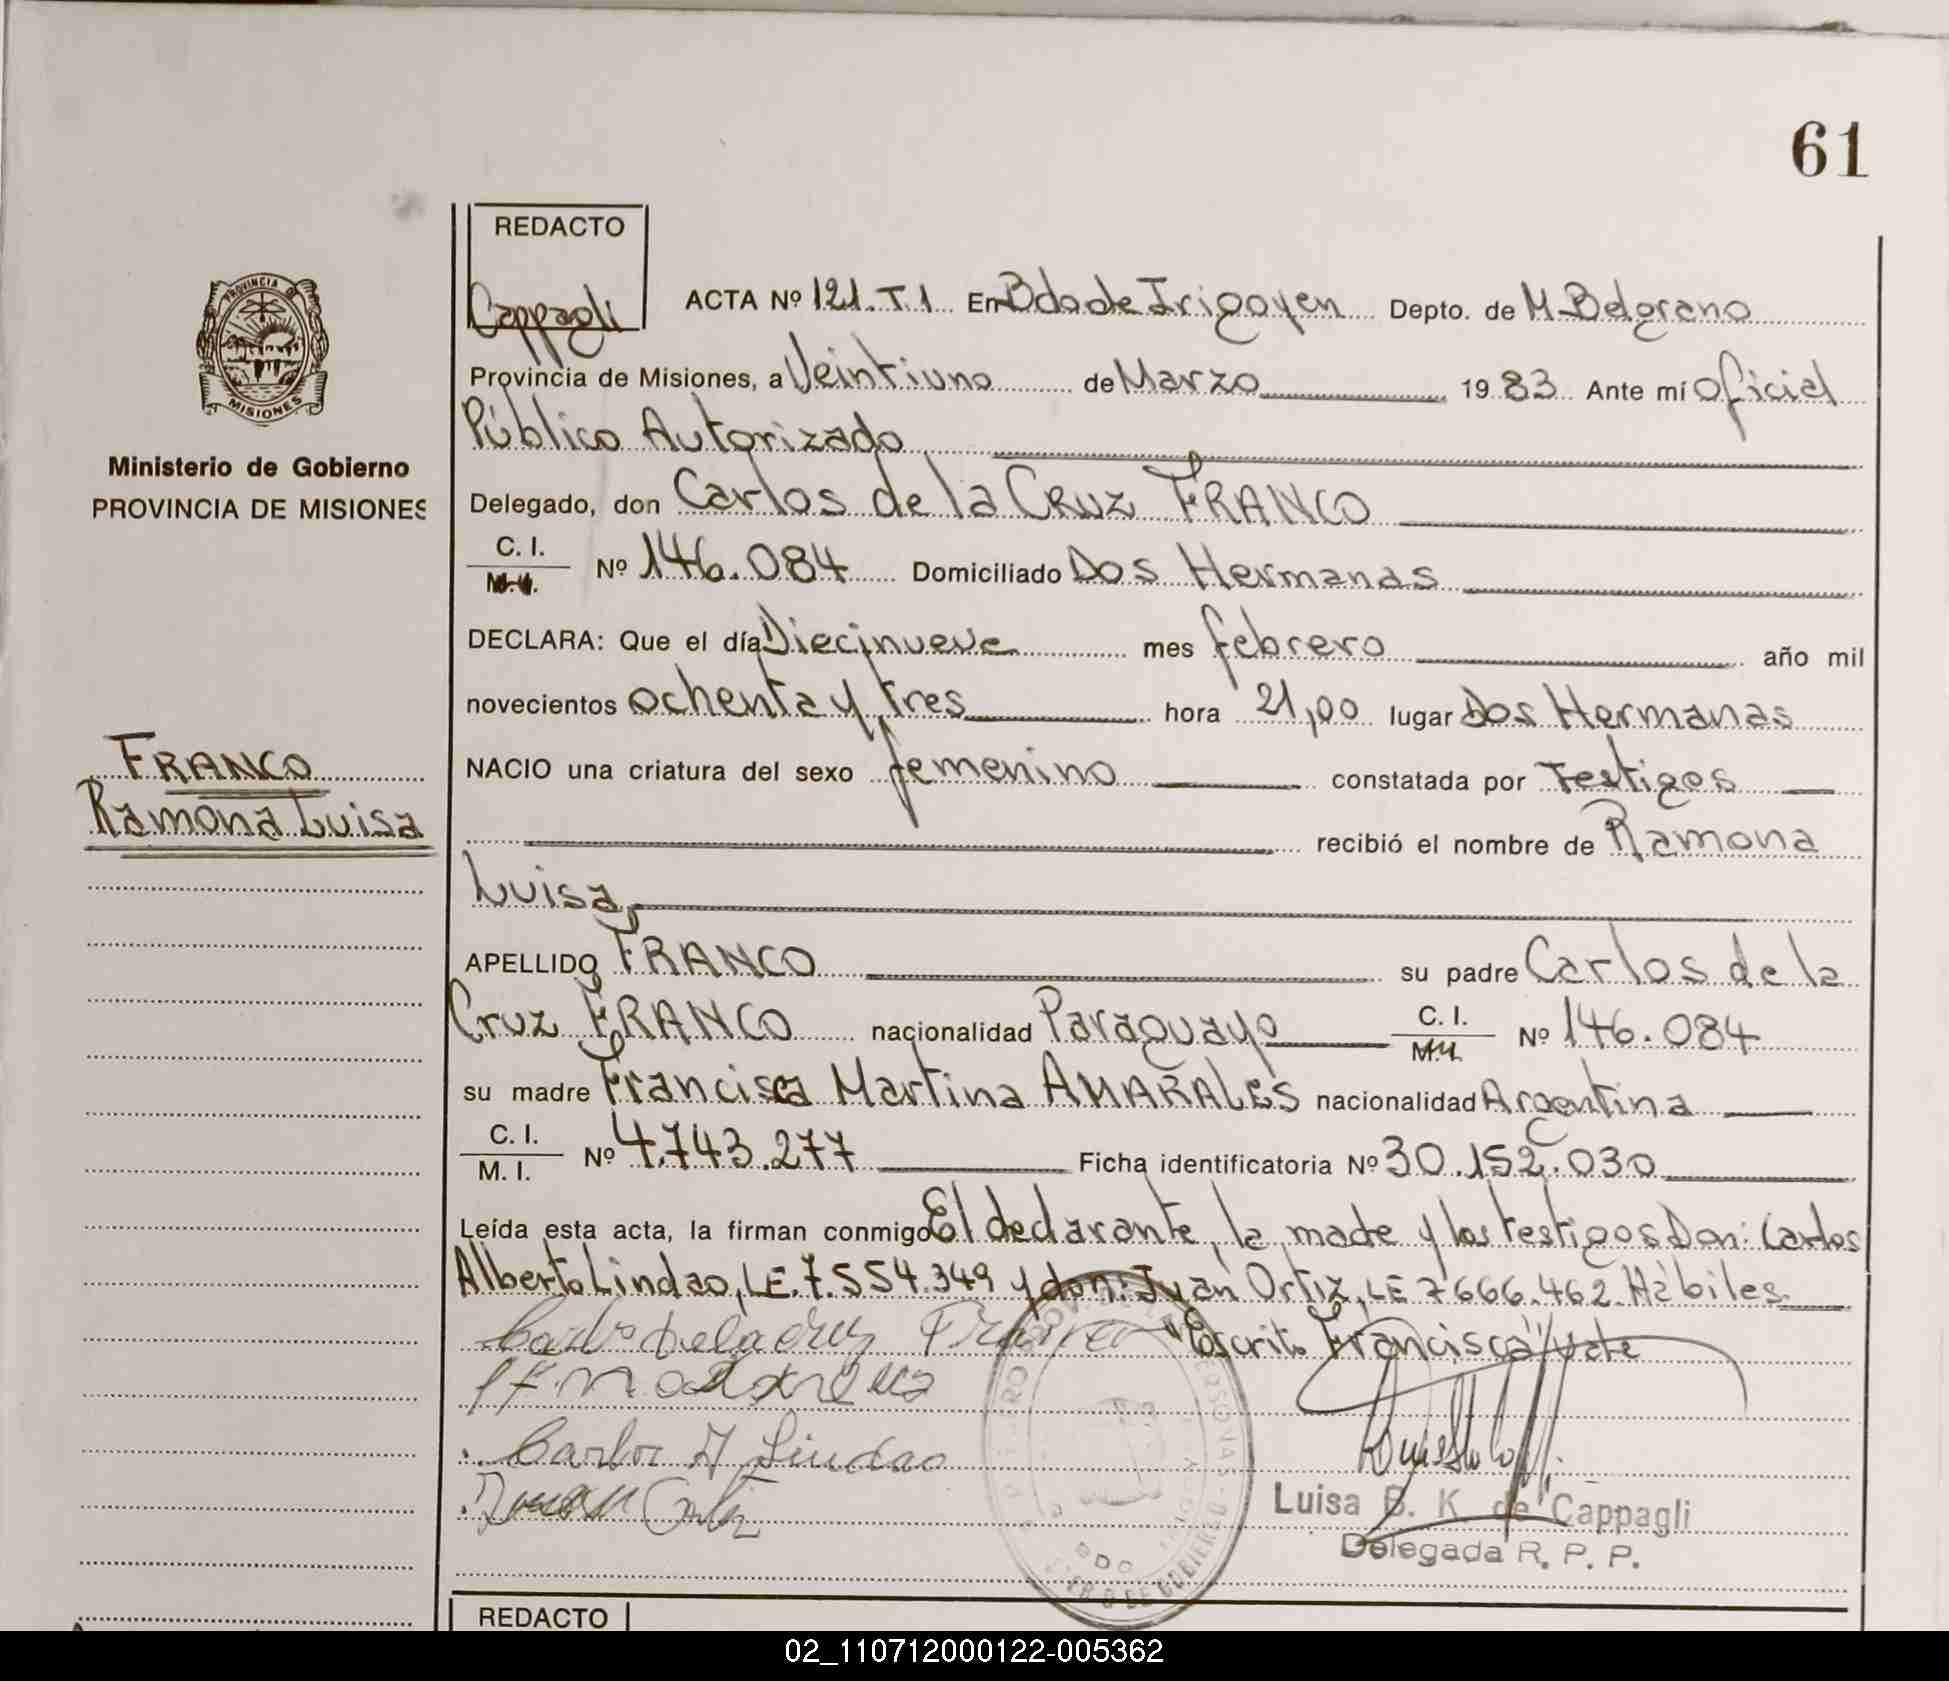 61
REDACTO
Cappagli
ACTA Nº 121.T.1 En Bdo de Irigoyen Depto. de M. Belgrano
Provincia de Misiones, a Veintiuno de Marzo 1983 Ante mí Oficial
Público Autorizado
Delegado, don Carlos de la Cruz FRANCO
C. I.
Nº 146.084 Domiciliado Dos Hermanas
DECLARA: Que el día Diecinueve mes febrero año mil
novecientos ochenta y tres hora 21,00 lugar Dos Hermanas
NACIO una criatura del sexo femenino constatada por Testigos
recibió el nombre de Ramona
Luisa,
APELLIDO FRANCO su padre Carlos de la
Cruz FRANCO nacionalidad Paraguayo C. I. Nº 146.084
su madre Francisca Martina AMARALES nacionalidad Argentina
C. I.
M. I. Nº 4.743.277 Ficha identificatoria Nº 30.152.030
Leída esta acta, la firman conmigo El declarante, la madre y los testigos Don: Carlos
Alberto Lindao, LE. 7.554.349 y don: Juan Ortiz, LE 7666.462. Hábiles
"Escrito Francisca" Vale
Carlos dela cruz Franco
Carlos A Lindao
Juan Ortiz
Luisa B. K de Cappagli
Delegada R. P. P.
PROVINCIA DE
MISIONES
Ministerio de Gobierno
PROVINCIA DE MISIONES
FRANCO
Ramona Luisa
REDACTO
02_110712000122-005362